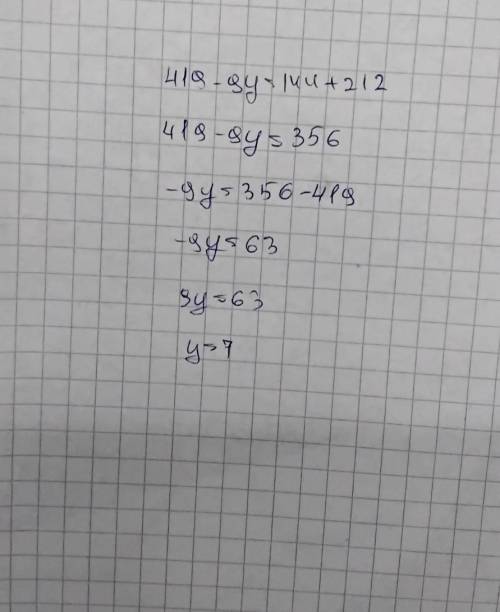 419 - 9y = 144 + 212
419 - 9y = 356
-9y = 356 - 419
-9y = 63
9y = 63
y = 7